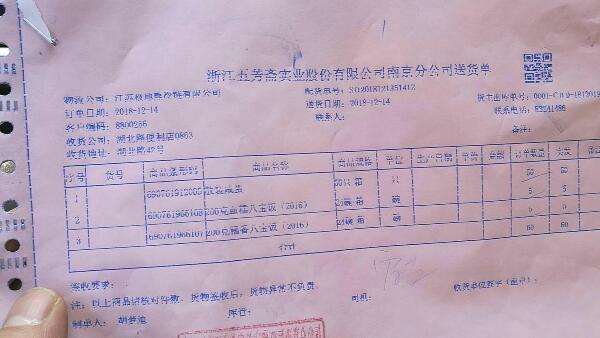 浙江五芳斋实业股份有限公司南京分公司送货单
物流公司：江苏极地熊冷链有限公司
配货单号：SO2018121351412
订单日期：2018-12-14
送货日期：2018-12-14
货主出库单号：0001-CHD-1812019
客户编码：8800286
联系人：
联系电话：83241486
收货公司：湖北路便利店0863
备注：
收货地址：湖北路42号
序号 货号 商品条形码 商品名称 商品规格 单位 生产日期 单价 金额 订单数量 实发 备
1 散装咸蛋 60只 箱 只 60 60
2 200克血糯八宝饭（2016） 24碗 箱 碗 5 5
3 690761966107 200克糯香八宝饭（2016） 24碗 箱 碗 5 5
合计 60 60
签收要求：
注：以上商品请核对件数，货物签收后，货物异常不负责。
制单人：胡梦迪
库管：
司机：
收货单位签字（盖章）：